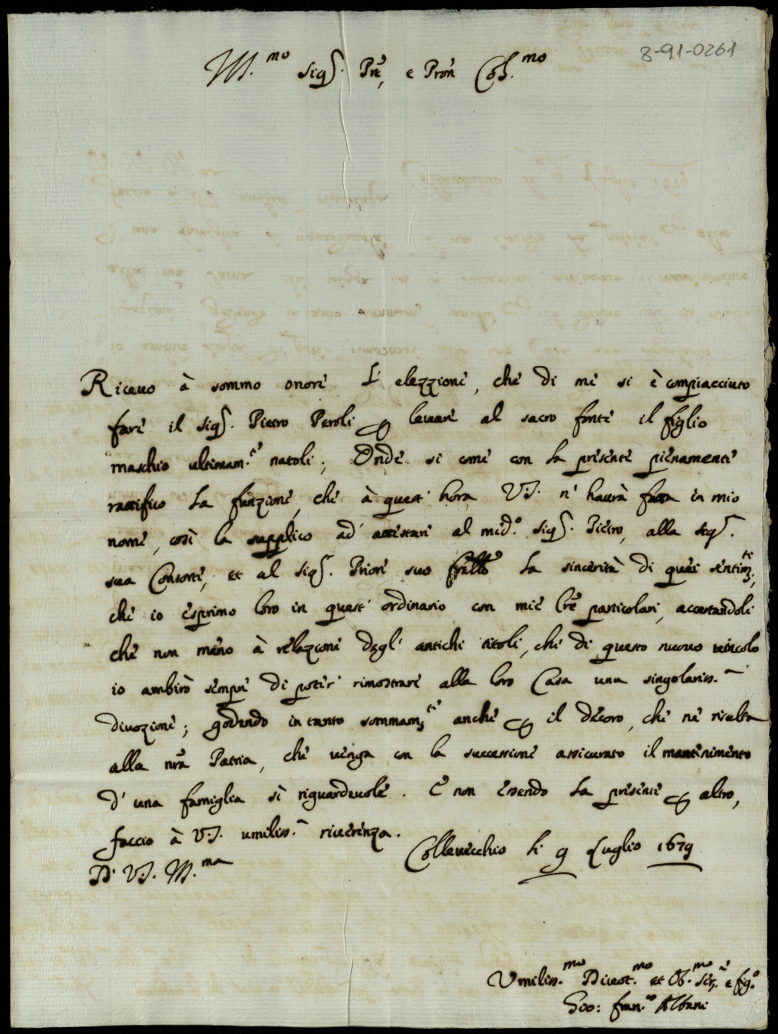 8-91-0261
Ill.mo Sig.r Pre, e Pron Col.mo
Riceuo à sommo onore l'elezzione, che di me si è compiacciuto
fare il Sig.r Pietro Peroli per leuare al sacro fonte il figlio
maschio ultimam.te natoli; Onde si come con la presente pienamente
rattifico la funzione, che à quest'hora VS. n'haurà fatta in mio
nome, così la supplico ad'attestare al med.o Sig.r Pietro, alla Sig.r
sua Consorte, et al Sig.r Priore suo frãllo la sincerità di quei sentim.ti,
che io esprimo loro in quest'ordinario con mie lre particolari, accertandoli
che non meno à relazione degl'antichi titoli, che di questo nuouo uincolo
io ambirò sempre di poter'rimostrare alla loro Casa una singolariss.a
diuozione; godendo in tanto sommam.te anche per il decoro, che ne risulta
alla nrã Patria, che uenga con la successione assicurato il mantenimento
d'una famiglia sì riguardeuole. E non essendo la presente per altro,
faccio à VS. umiliss.a riuerenza.
Colleuecchio li 9 Luglio 1679
Di VS. Ill.ma
Umiliss.mo Diuot.mo et Ob.mo Ser.e e fig.o
Gio: Fran.co Albani